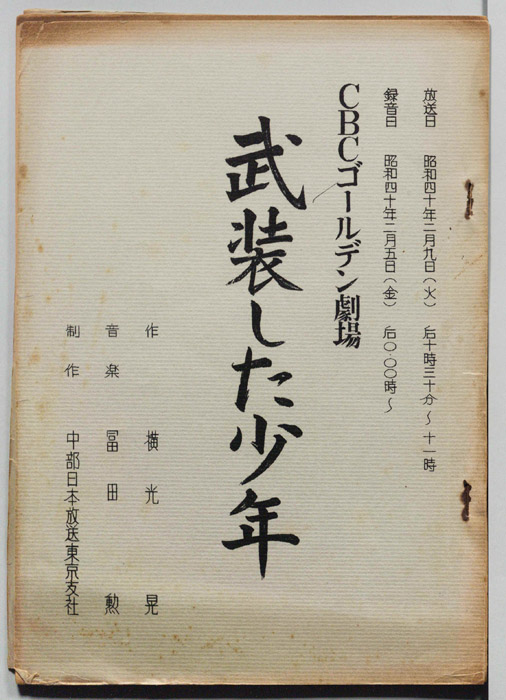 放送日 昭和四十年二月九日(火) 后十時三十分~十一時
録音日 昭和四十年二月五日(金) 后〇・〇〇時~
CBCゴールデン劇場
武装した少年
作 横光晃
音楽 冨田勲
制作 中部日本放送東京支社